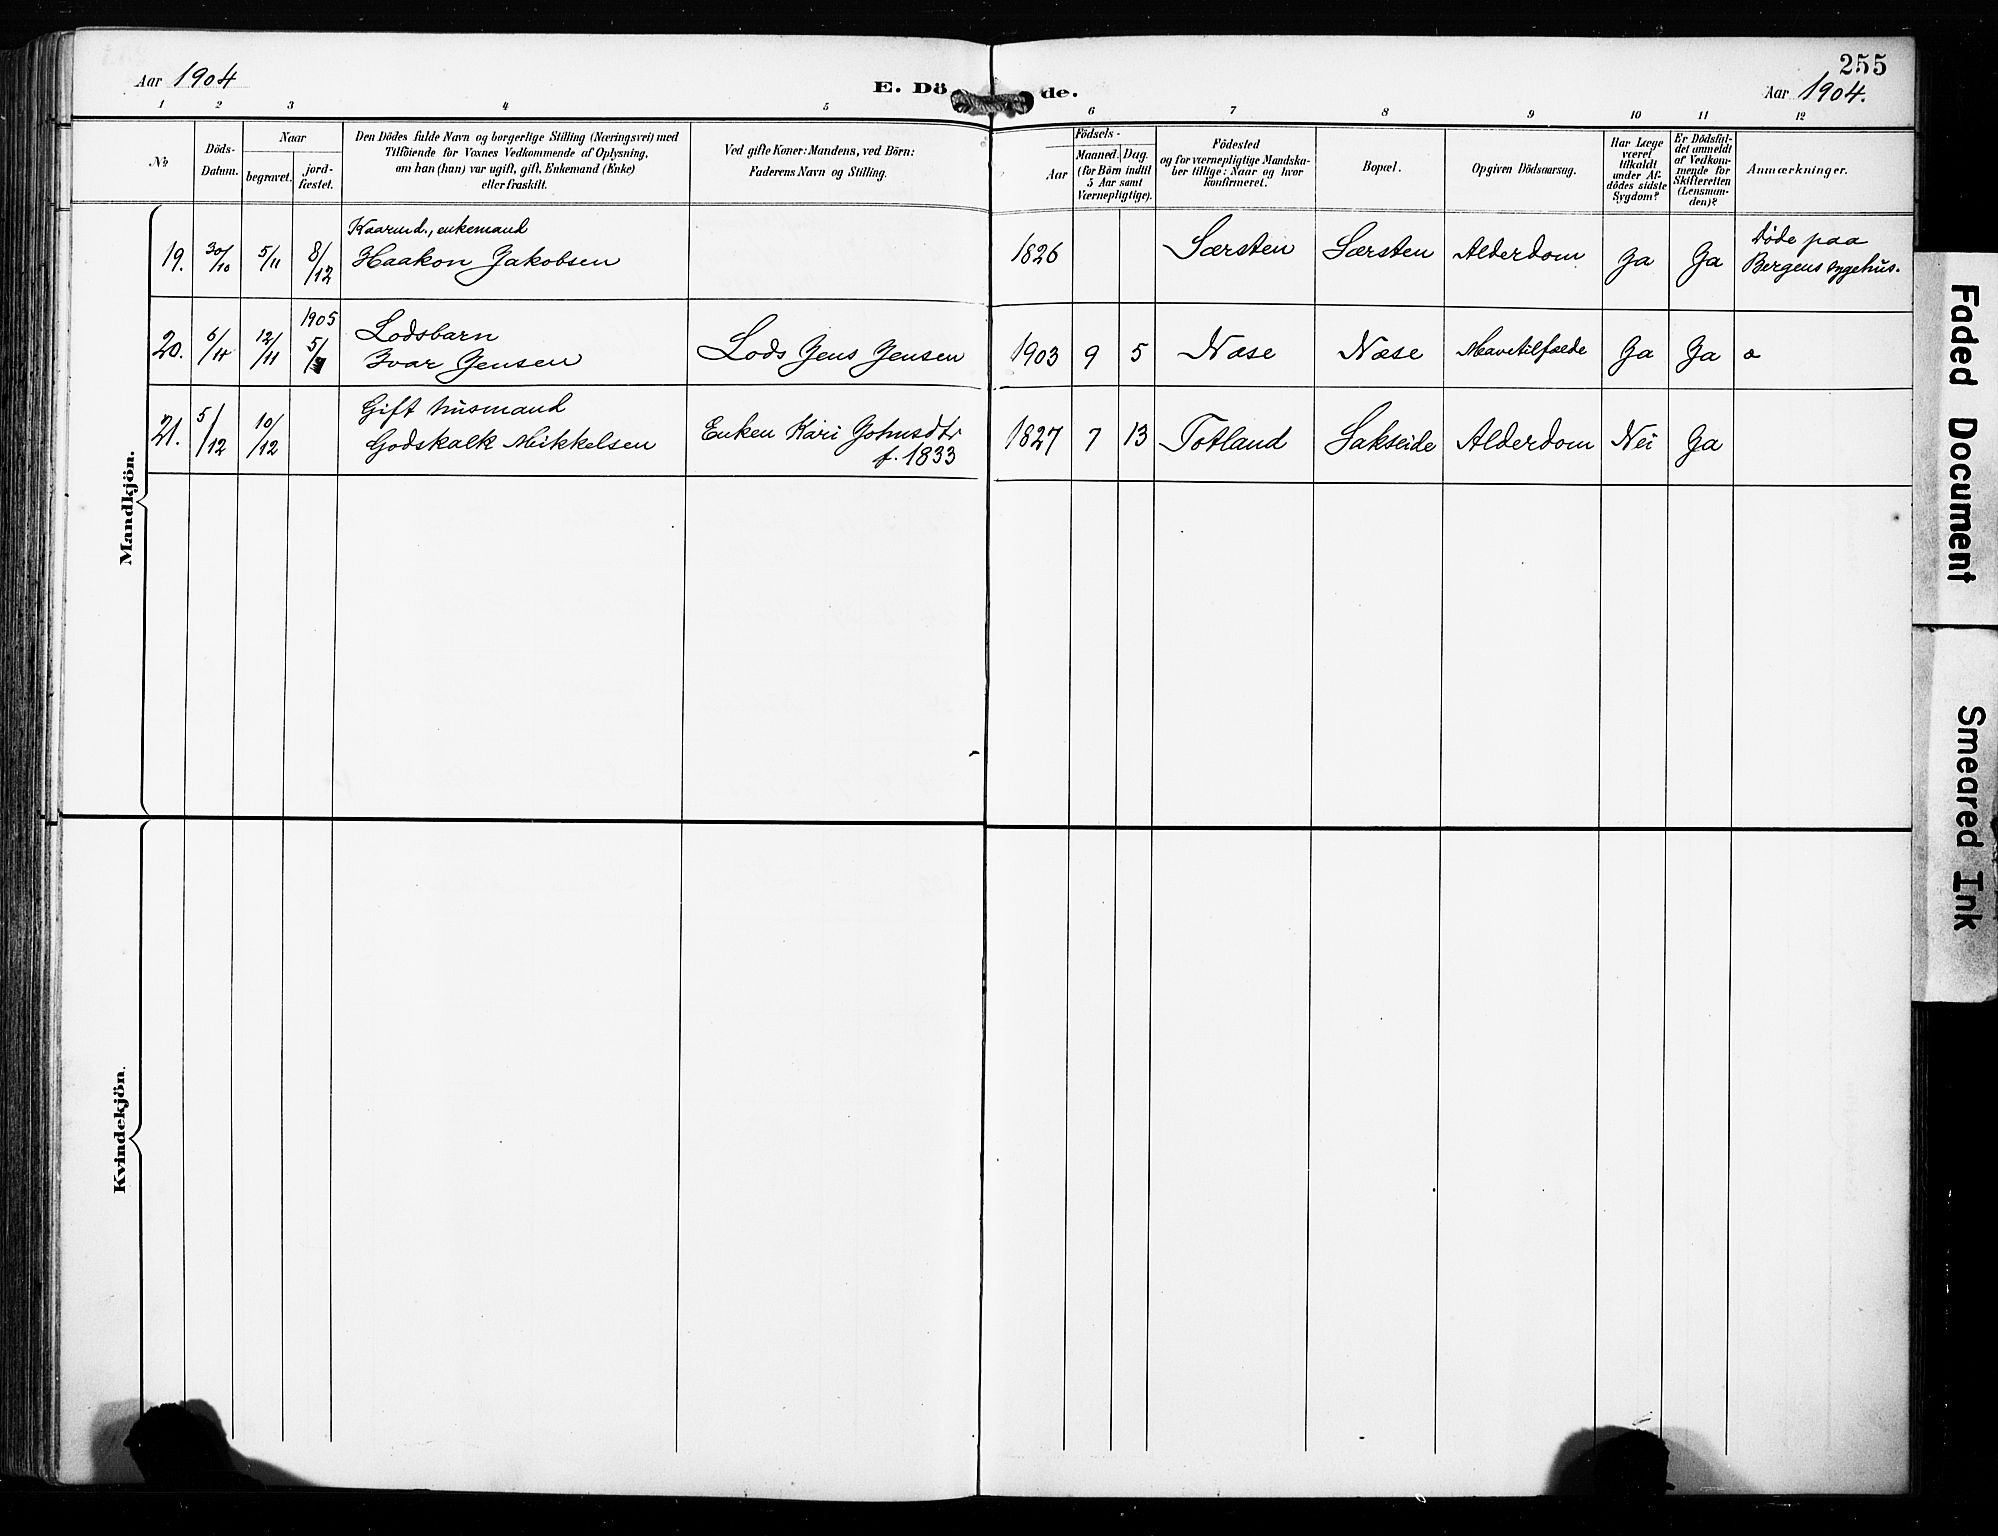 255
Aar 1904
E. Dö de.
Aar 1904.
1 2 3 4 5 6 7 8 9 10 11 12
No
Döds-
Datum.
Naar
begravet.
jord-
fæstet.
Den Dödes fulde Navn og borgerlige Stilling (Næringsvei) med
Tilföiende for Voxnes Vedkommende af Oplysning,
om han (hun) var ugift, gift, Enkemand (Enke)
eller fraskilt.
Ved gifte Koner: Mandens, ved Börn:
Faderens Navn og Stilling.
Födsels-
Aar
Maaned. Dag.
(for Börn indtil
5 Aar samt
Værnepligtige).
Födested
og for værnepligtige Mandska-
ber tillige: Naar og hvor
konfirmeret.
Bopæl.
Opgiven Dödsaarsag.
Har Læge
været
tilkaldt
under Af-
dödes sidste
Sygdom?
Er Dödsfal-
det anmeldt
af Vedkom-
mende for
Skifteretten
(Lensman-
den)?
Anmærkninger.
Mandkjön.
19. 30/10 5/11 8/12
Kaarmd., enkemand
Haakon Jakobsen
1826 Særsten Særsten Alderdom Ja Ja
Døde paa
Bergens sygehus.
1905
20. 6/11 12/11 5/
Lodsbarn
Ivar Jensen
Lods Jens Jensen
1903 9 5 Næse Næse Mavetilfælde Ja Ja
21. 5/12 10/12
Gift husmand
Godskalk Mikkelsen
Enken Kari Johnsdtr
f. 1833
1827 7 13 Totland Sakseide Alderdom Nei Ja
Kvindekjön.
Faded Document
Smeared Ink